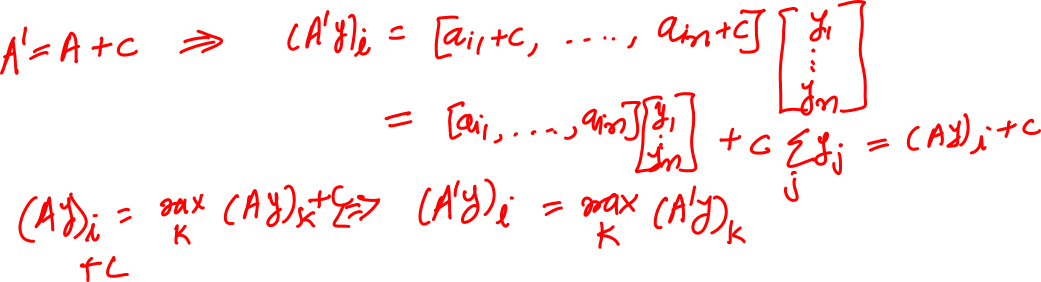 A' = A + C ⇒ (A'y)_i = [a_{i1}+C, ...., a_{in}+C] [y_1 ⋮ y_n]
= [a_{i1}, ...., a_{in}] [y_1 ⋮ y_n] + C Σ_j y_j = (Ay)_i + C
(Ay)_i + C = max_K (Ay)_K + C ⇔ (A'y)_i = max_K (A'y)_K